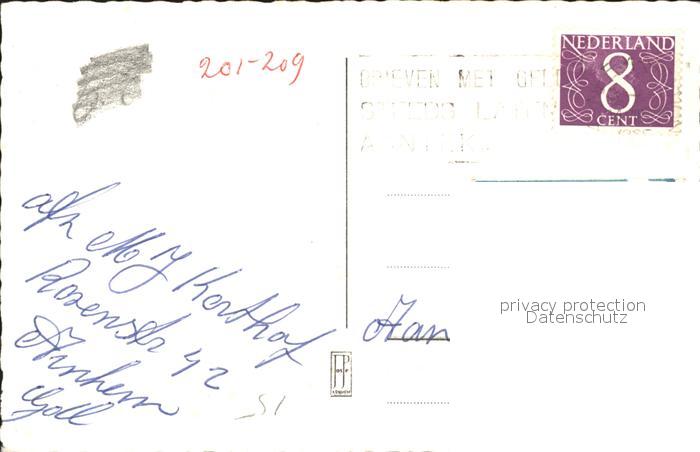 201-209
NEDERLAND
8
CENT
BRIEVEN MET GELD
STEEDS LATEN
AANTEK.
afz M J Korthof
Rozenstr 42
Arnhem
Holl
privacy protection
Datenschutz
51